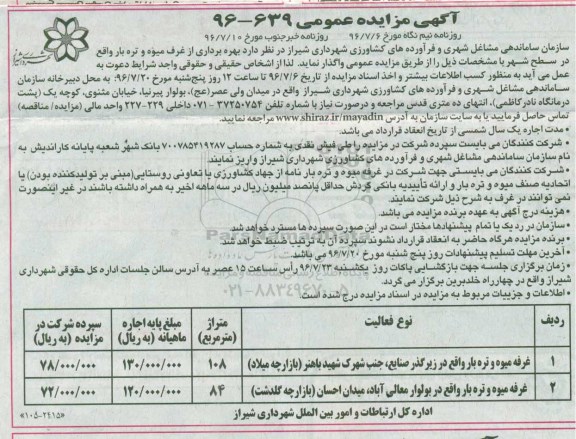 آگهی مزایده عمومی ۶۳۹-۹۶
روزنامه نیم نگاه مورخ ۹۶/۷/۶ روزنامه خبرجنوب مورخ ۹۶/۷/۱۰
سازمان ساماندهی مشاغل شهری و فرآورده های کشاورزی شهرداری شیراز در نظر دارد بهره برداری از غرف میوه و تره بار واقع
در سطح شهر با مشخصات ذیل را از طریق مزایده عمومی واگذار نماید. لذا از اشخاص حقیقی و حقوقی واجد شرایط دعوت به
عمل می آید به منظور کسب اطلاعات بیشتر و اخذ اسناد مزایده از تاریخ ۹۶/۷/۶ تا ساعت ۱۲ روز پنج‌شنبه مورخ ۹۶/۷/۲۰، به محل دبیرخانه سازمان
ساماندهی مشاغل شهری و فرآورده های کشاورزی شهرداری شیراز واقع در میدان ولی عصر(عج)، بولوار پیرنیا، خیابان مثنوی، کوچه یک (پشت
درمانگاه نادرکاظمی)، انتهای ده متری قدس مراجعه و درصورت نیاز با شماره تلفن ۳۷۲۵۰۷۵۴-۰۷۱ داخلی ۲۲۹-۲۲۷ واحد مالی (مزایده/ مناقصه)
تماس حاصل فرمایید یا به سایت سازمان به آدرس www.shiraz.ir/mayadin مراجعه نمایید.
• مدت اجاره یک سال شمسی از تاریخ انعقاد قرارداد می باشد.
• شرکت کنندگان می بایست سپرده شرکت در مزایده را طی فیش نقدی به شماره حساب ۷۰۰۷۸۵۴۱۹۲۸۷ بانک شهر شعبه پایانه کاراندیش به
نام سازمان ساماندهی مشاغل شهری و فرآورده های کشاورزی شهرداری شیراز واریز نمایند.
• شرکت کنندگان می بایستی جهت شرکت در غرفه میوه و تره بار نامه از جهاد کشاورزی یا تعاونی روستایی(مبنی بر تولیدکننده بودن) یا
اتحادیه صنف میوه و تره بار و ارائه تأییدیه بانکی گردش حداقل پانصد میلیون ریال در سه ماهه اخیر به همراه داشته باشند در غیر اینصورت
نمی توانند در غرفه به شرح ذیل شرکت نمایند.
• هزینه درج آگهی به عهده برنده مزایده می باشد.
• سازمان در رد یک یا تمام پیشنهادها مختار است در این صورت سپرده ها مسترد خواهد شد.
• برنده مزایده هرگاه حاضر به انعقاد قرارداد نشوند سپرده آن به ترتیب ضبط خواهد شد.
• آخرین مهلت تسلیم پیشنهادات روز پنج شنبه مورخ ۹۶/۷/۲۰ می باشد.
• زمان برگزاری جلسه جهت بازگشایی پاکات روز یکشنبه ۹۶/۷/۲۳ رأس ساعت ۱۵ عصر به آدرس سالن جلسات اداره کل حقوقی شهرداری
شیراز واقع در چهارراه خلدبرین برگزار می گردد.
• اطلاعات و جزییات مربوط به مزایده در اسناد مزایده درج شده است.
ParsNamadData
۰۲۱-۸۸۳۴۹۶۷۰-۵
ردیف نوع فعالیت متراژ (مترمربع) مبلغ پایه اجاره ماهیانه (به ریال) سپرده شرکت در مزایده (به ریال)
۱ غرفه میوه و تره بار واقع در زیرگذر صنایع، جنب شهرک شهید باهنر (بازارچه میلاد) ۱۰۸ ۱۳۰/۰۰۰/۰۰۰ ۷۸/۰۰۰/۰۰۰
۲ غرفه میوه و تره بار واقع در بولوار معالی آباد، میدان احسان (بازارچه گلدشت) ۸۴ ۱۲۰/۰۰۰/۰۰۰ ۷۲/۰۰۰/۰۰۰
اداره کل ارتباطات و امور بین الملل شهرداری شیراز
«۱۰۵-۲۴۱۵»